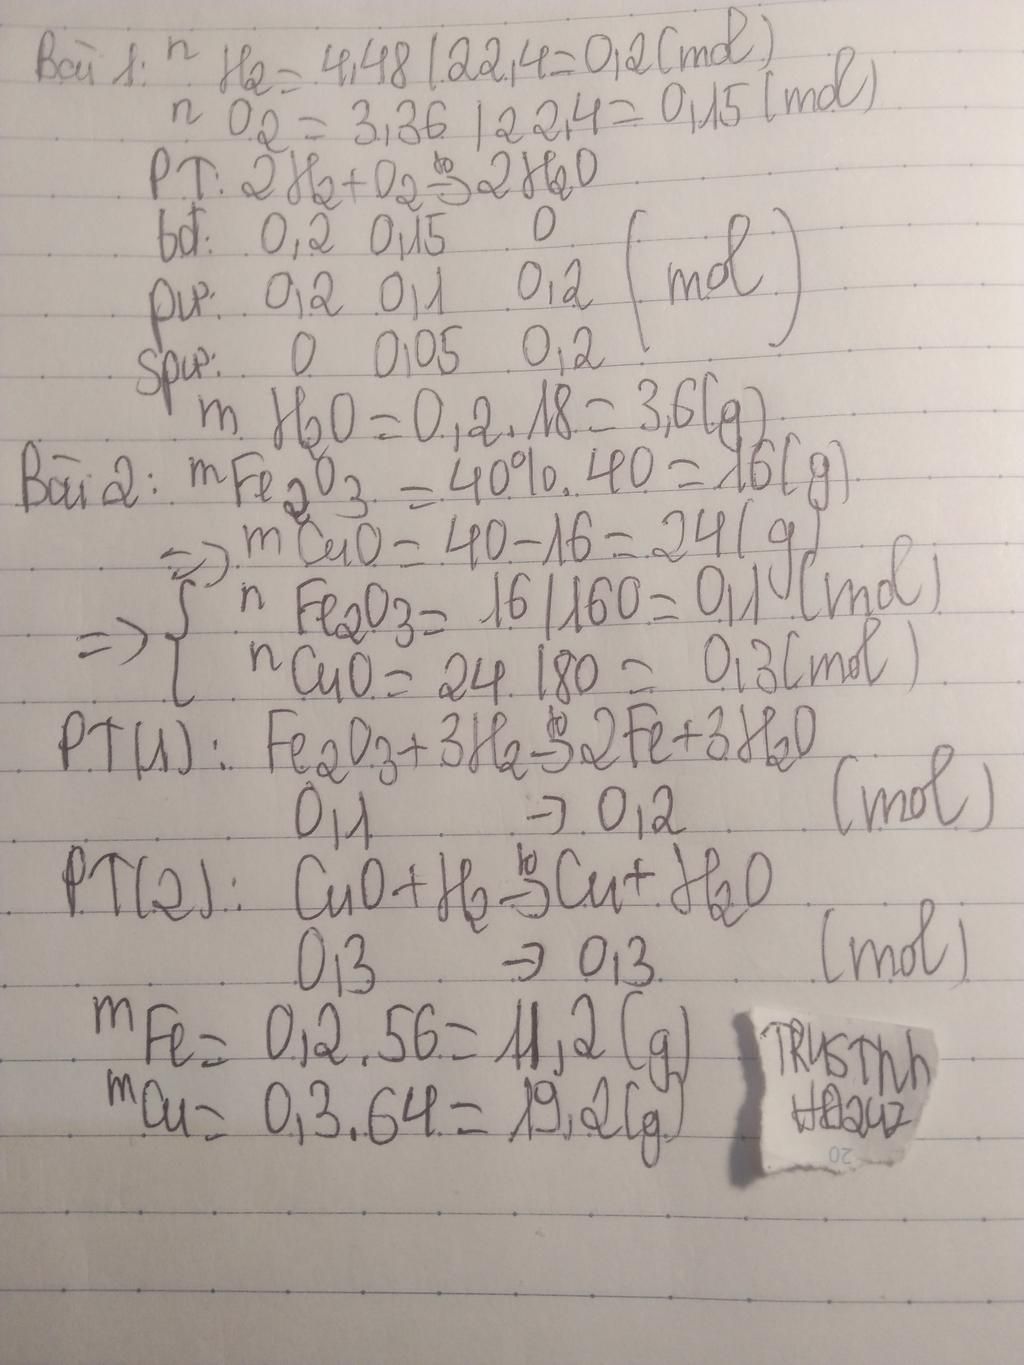 Bài 1: n H2 = 4,48/22,4 = 0,2 (mol)
n O2 = 3,36/22,4 = 0,15 (mol)
PT: 2H2 + O2 -to-> 2H2O
bđ: 0,2 0,15 0
pư: 0,2 0,1 0,2 (mol)
spư: 0 0,05 0,2
m H2O = 0,2.18 = 3,6 (g)
Bài 2: m Fe2O3 = 40%.40 = 16 (g)
=> m CuO = 40-16 = 24 (g)
=> { n Fe2O3 = 16/160 = 0,1 (mol)
n CuO = 24/80 = 0,3 (mol)
PT(1): Fe2O3 + 3H2 -to-> 2Fe + 3H2O
0,1 -> 0,2 (mol)
PT(2): CuO + H2 -to-> Cu + H2O
0,3 -> 0,3 (mol)
m Fe = 0,2.56 = 11,2 (g)
m Cu = 0,3.64 = 19,2 (g)
TRUSThh
20